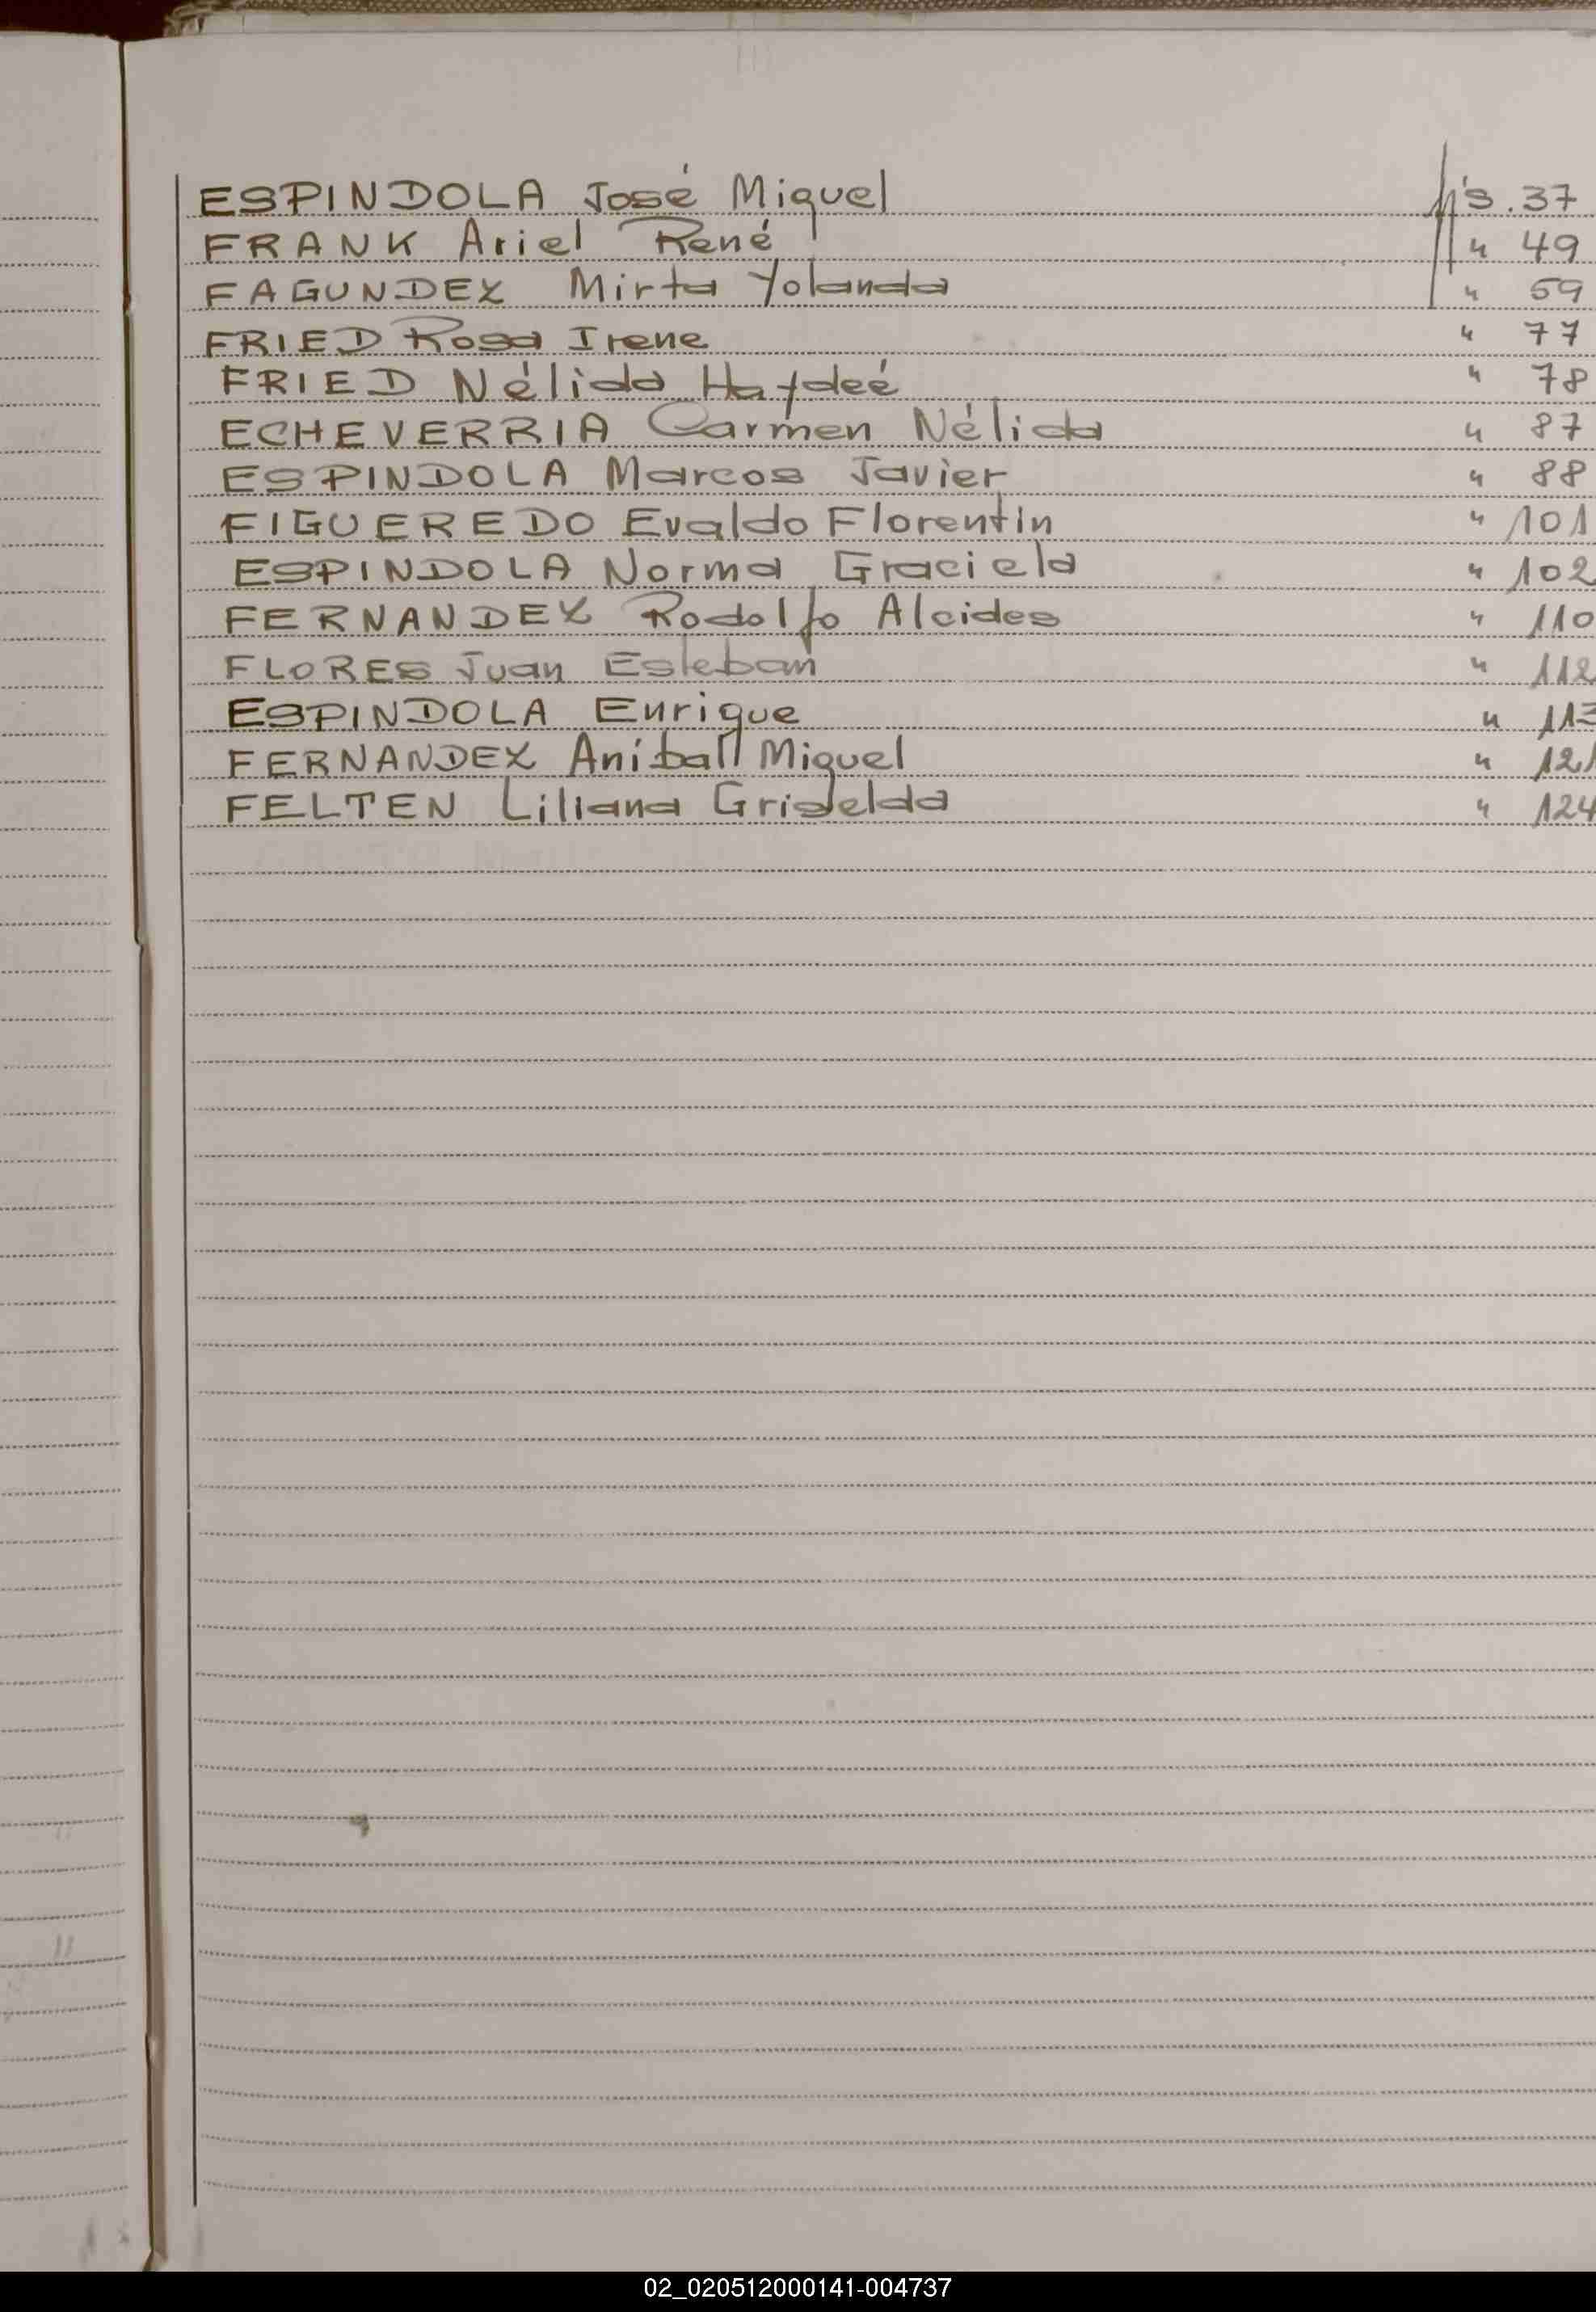 ESPINDOLA José Miguel fs. 37
FRANK Ariel René " 49
FAGUNDEZ Mirta Yolanda " 59
FRIED Rosa Irene " 77
FRIED Nélida Haydeé " 78
ECHEVERRIA Carmen Nélida " 87
ESPINDOLA Marcos Javier " 88
FIGUEREDO Evaldo Florentín " 101
ESPINDOLA Norma Graciela " 102
FERNANDEZ Rodolfo Alcides " 110
FLORES Juan Esteban " 112
ESPINDOLA Enrique " 113
FERNANDEZ Aníbal Miguel " 121
FELTEN Liliana Griselda " 124
02_020512000141-004737